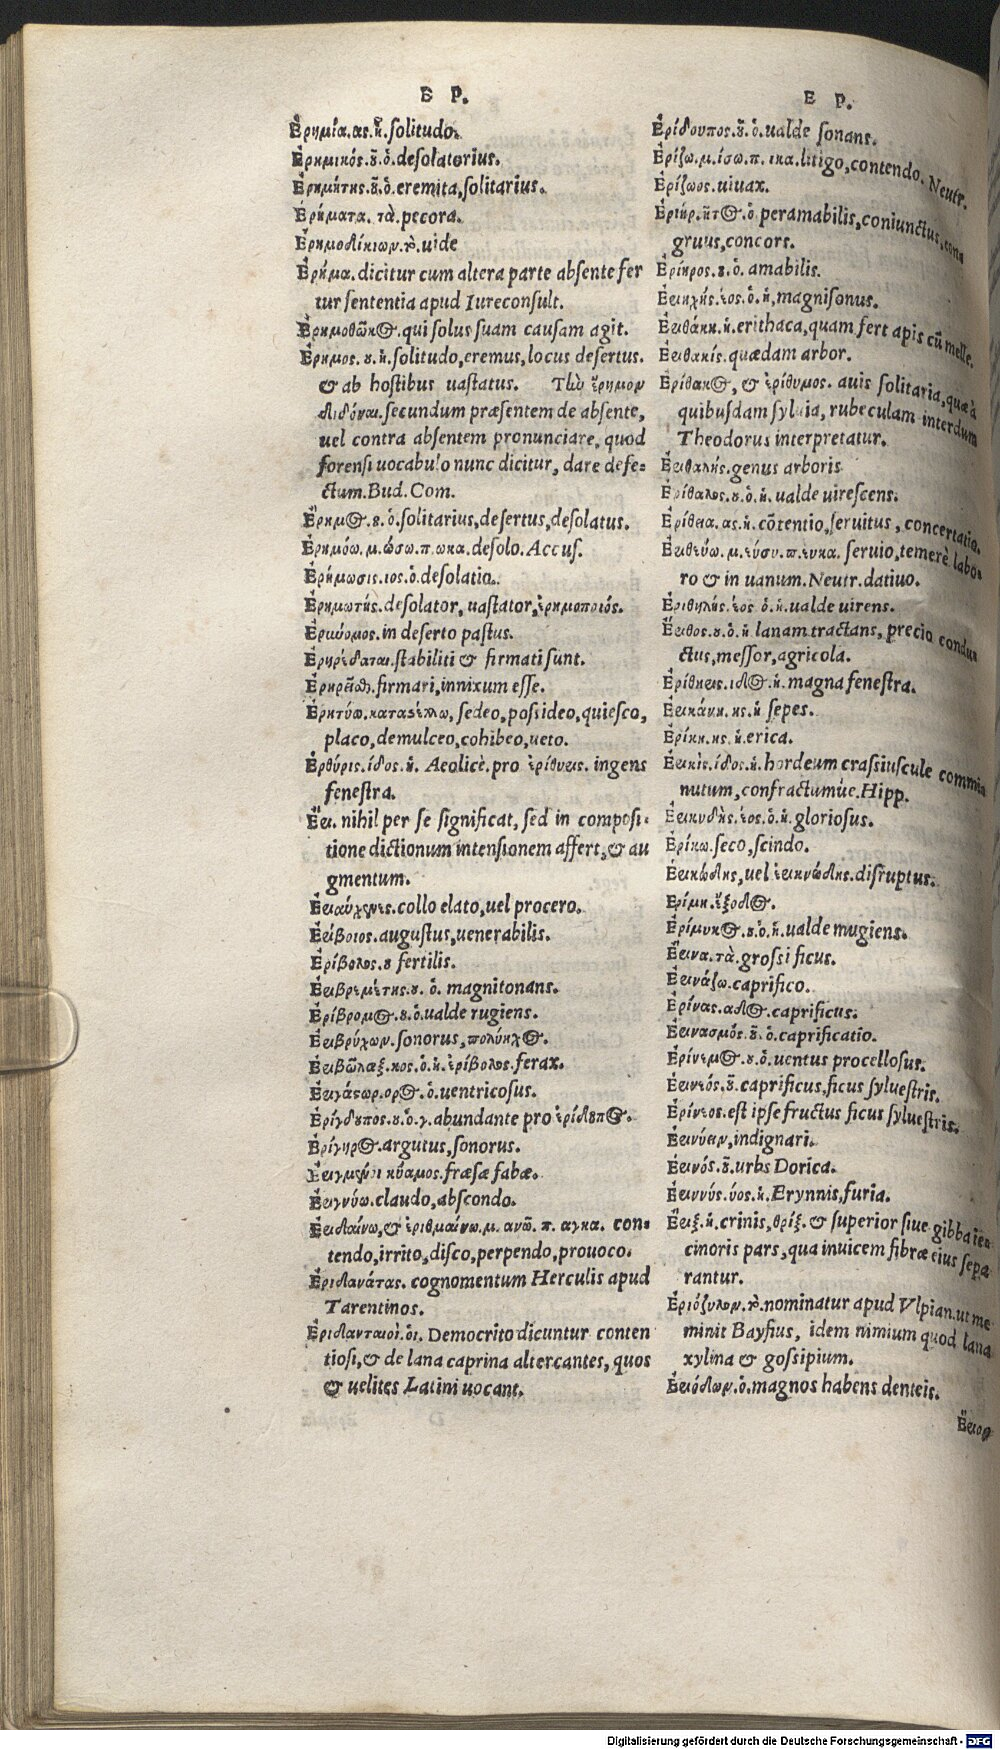 Ε Ρ.
Ἐρημία.ας.ἡ.ſolitudo.
Ἐρημικός.οῦ.ὁ.deſolatorius.
Ἐρημίτης.ου.ὁ.eremita,ſolitarius.
Ἐρήματα. τὰ.pecora.
Ἐρημοδίκιον.τὸ.uide
Ἐρήμα. dicitur cum altera parte abſente fer
tur ſententia apud Iureconſult.
qui ſolus ſuam cauſam agit.
Ἔρημος.ου.ἡ.ſolitudo,eremus,locus deſertus.
& ab hoſtibus uaſtatus. Τὴν ἔρημον
διδόναι.ſecundum præſentem de abſente,
uel contra abſentem pronunciare, quod
forenſi uocabulo nunc dicitur, dare defe-
ctum.Bud.Com.
Ἔρημος.ου.ὁ.ſolitarius,deſertus,deſolatus.
Ἐρημόω.μ.ώσω.π.ωκα.deſolo. Accuſ.
Ἐρήμωσις.ιος.ὁ.deſolatio.
Ἐρημωτής.deſolator, uaſtator,ἐρημοποιός.
in deſerto paſtus.
Ἐρηρέδαται.ſtabiliti & firmati ſunt.
firmari,innixum eſſe.
Ἐρητύω. ſedeo,poſsideo,quieſco,
placo,demulceo,cohibeo,ueto.
Ἐρθύρις.ίδος.ἡ. Aeolicè.pro ingens
feneſtra.
Ἔρι. nihil per ſe ſignificat, ſed in compoſi-
tione dictionum intenſionem affert,& au
gmentum.
Ἐριαύχενες.collo elato,uel procero.
Ἐρίβοιος.auguſtus,uenerabilis.
Ἐρίβολος.ου fertilis.
Ἐριβρεμέτης.ου. ὁ. magnitonans.
Ἐρίβρομος.ου.ὁ.ualde rugiens.
Ἐριβρύχων.ſonorus,πολύηχος.
Ἐριβῶλαξ.κος.ὁ.ἡ.ἐρίβολος.ferax.
Ἐριγάστωρ.ορος.ὁ.uentricoſus.
Ἐρίγδουπος.ου.ὁ.γ.abundante pro ἐρίδουπος.
Ἐρίγηρος.argutus,ſonorus.
κύαμος.fræſæ fabæ.
Ἐριγνύω.claudo,abſcondo.
Ἐριδαίνω,& ἐριθμαίνω.μ. ανῶ. π. αγκα. con-
tendo,irrito,diſco,perpendo,prouoco.
Ἐριδανάτας. cognomentum Herculis apud
Tarentinos.
Ἐριδανταιοὶ.ὁι. Democrito dicuntur conten
tioſi,& de lana caprina altercantes, quos
& uelites Latini uocant.
Ε Ρ.
Ἐρίδουπος.ου.ὁ.ualde ſonans.
Ἐρίζω.μ.ίσω.π. ικα.litigo,contendo. Neutr.
Ἐρίζωος.uiuax.
Ἐριήρ.ῆτος.ὁ peramabilis,coniunctus,con-
gruus,concors.
Ἐρίηρος.ου.ὁ. amabilis.
Ἐριηχής.έος.ὁ.ἡ,magniſonus.
Ἐριθάκη.ἡ.erithaca,quam fert apis cũ melle.
Ἐριθακίς.quædam arbor.
Ἐρίθακος, & ἐρίθυμος. auis ſolitaria,quæ à
quibuſdam ſyluia, rubeculam interdum
Theodorus interpretatur.
Ἐριθαλής.genus arboris
Ἐρίθαλος.ου.ὁ.ἡ. ualde uireſcens.
Ἐρίθεια.ας.ἡ.cõtentio,ſeruitus, concertatio.
Ἐριθεύω.μ.εύσω.π.ευκα. ſeruio,temerè labo-
ro & in uanum.Neutr.datiuo.
Ἐριθηλής.έος ὁ.ἡ.ualde uirens.
Ἔριθος.ου.ὁ.ἡ lanam tractans, precio condu-
ctus,meſſor,agricola.
magna feneſtra.
Ἐρικάνη.ης.ἡ ſepes.
Ἐρίκη.ης ἡ.erica.
Ἐρικὶς.ίδος.ἡ.hordeum craſsiuſcule commi-
nutum,confractumúe.Hipp.
Ἐρικυδὴς.έος.ὁ.ἡ.glorioſus.
Ἐρίκω.ſeco,ſcindo.
Ἐρικώδης,uel ἐρικνώδης.diſruptus.
Ἐρίμη.ἔξοδος.
Ἐρίμυκος.ου.ὁ.ἡ.ualde mugiens.
Ἔρινα.τὰ.groſsi ficus.
Ἐρινάζω.caprifico.
Ἐρίνας.αδος.caprificus.
Ἐρινασμός.οῦ.ὁ.caprificatio.
Ἐρίνεμος.ου.ὁ.uentus procelloſus.
Ἐρινεός.οῦ.caprificus,ficus ſylueſtris.
Ἐρίνεος.eſt ipſe fructus ficus ſylueſtris.
Ἐρινύειν,indignari.
Ἐρινός.οῦ.urbs Dorica.
Ἐριννύς.ύος.ἡ.Erynnis,furia.
Ἔριξ.ἡ.crinis,θρίξ.& ſuperior ſiue gibba ie-
cinoris pars,qua inuicem fibræ eius ſepa
rantur.
Ἐριόξυλον.τὸ.nominatur apud Vlpian.ut me
minit Bayfius, idem nimium quod lana
xylina & goſsipium.
Ἐριόδων.ὁ.magnos habens denteis.
Digitalisierung gefördert durch die Deutsche Forschungsgemeinschaft - DFG